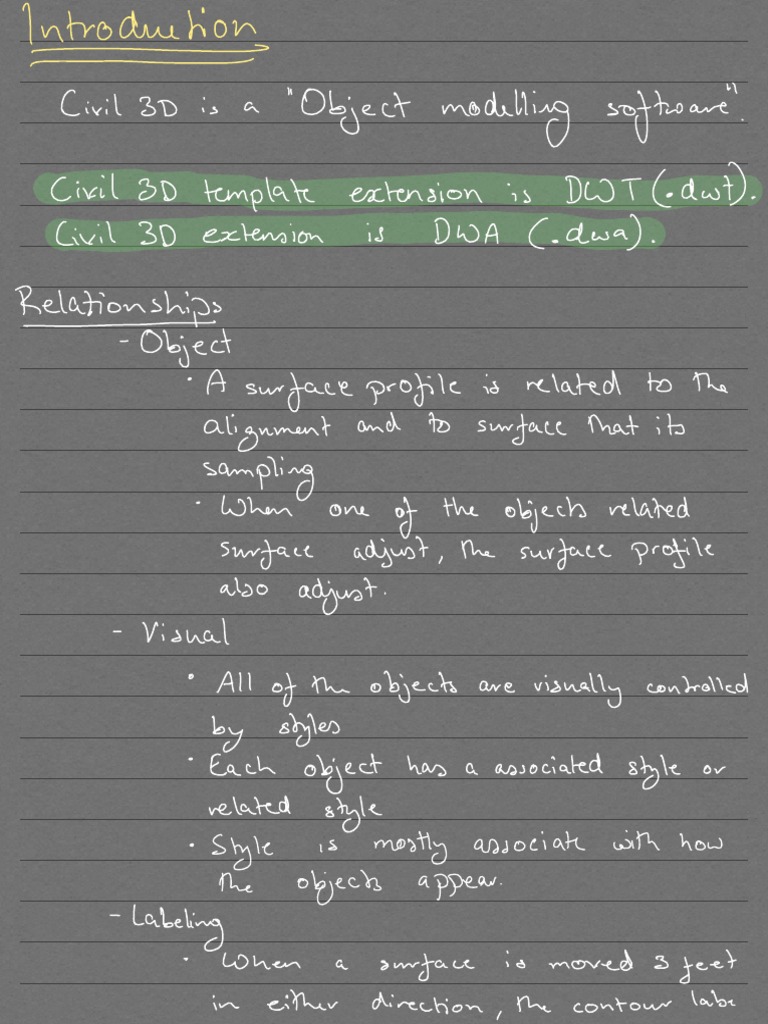 Introduction
Civil 3D is a "Object modelling software".
Civil 3D template extension is DWT (.dwt).
Civil 3D extension is DWA (.dwa).
Relationships
- Object
· A surface profile is related to the
alignment and to surface that its
sampling
· When one of the objects related
surface adjust, the surface profile
also adjust.
- Visual
· All of the objects are visually controlled
by styles
· Each object has a associated style or
related style
· Style is mostly associate with how
the objects appear.
- Labeling
· When a surface is moved 3 feet
in either direction, the contour labe